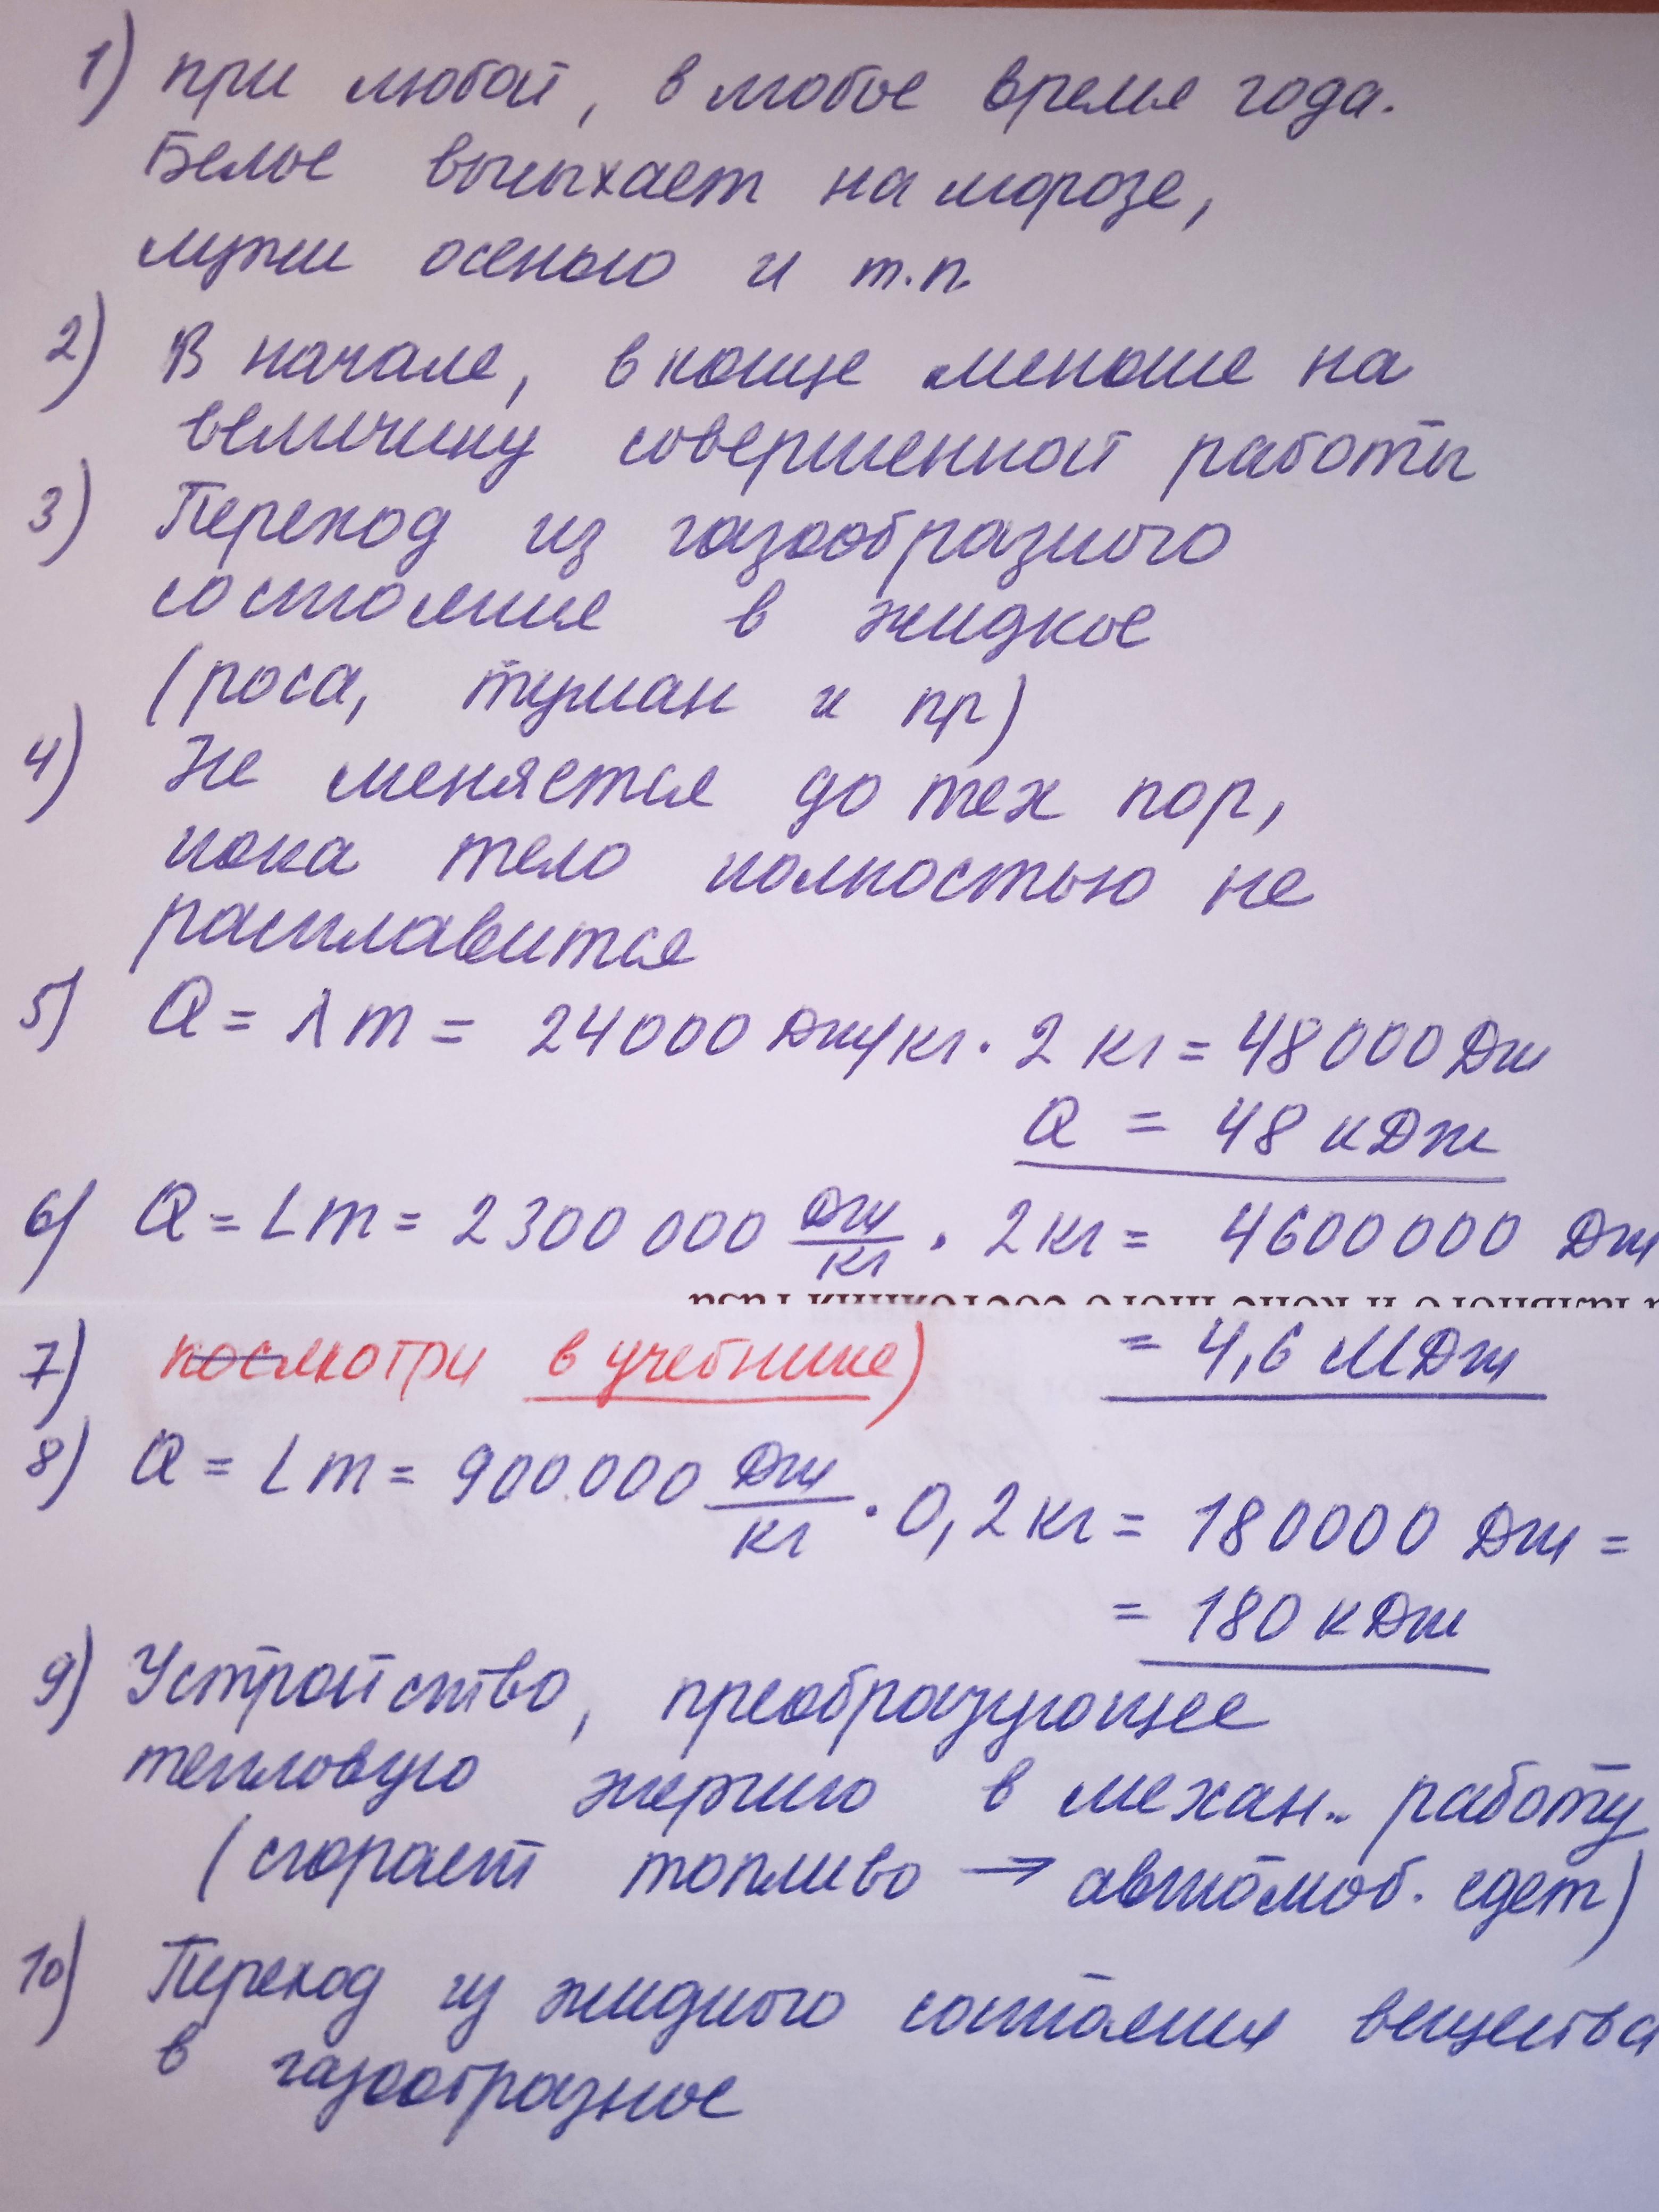 1) при любой, в любое время года.
Белье высыхает на морозе,
лужи осенью и т.п.
2) В начале, в конце меньше на
величину совершенной работы
3) Переход из газообразного
состояния в жидкое
(роса, туман и пр)
4) Не меняется до тех пор,
пока тело полностью не
расплавится
5) Q = λm = 24000 Дж/кг · 2 кг = 48000 Дж
Q = 48 кДж
6) Q = Lm = 2300 000 Дж/кг · 2 кг = 4600000 Дж
= 4,6 МДж
7) посмотри в учебнике)
8) Q = Lm = 900.000 Дж/кг · 0,2 кг = 180000 Дж =
= 180 кДж
9) Устройство, преобразующее
тепловую энергию в механ.. работу
(сгорает топливо → автомоб. едет)
10) Переход из жидкого состояния вещества
в газообразное